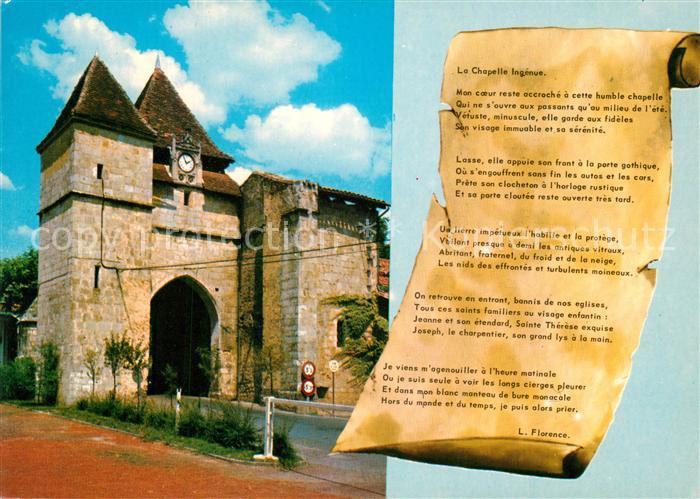 La Chapelle Ingénue.
Mon cœur reste accroché à cette humble chapelle
Qui ne s'ouvre aux passants qu'au milieu de l'été.
Vétuste, minuscule, elle garde aux fidèles
Son visage immuable et sa sérénité.
Lasse, elle appuie son front à la porte gothique,
Où s'engouffrent sans fin les autos et les cars,
Prête son clocheton à l'horloge rustique
Et sa porte cloutée reste ouverte très tard.
Un lierre impétueux l'habille et la protège,
Voilant presque à demi les antiques vitraux,
Abritant, fraternel, du froid et de la neige,
Les nids des effrontés et turbulents moineaux.
On retrouve en entrant, bannis de nos eglises,
Tous ces saints familiers au visage enfantin :
Jeanne et son étendard, Sainte Thérèse exquise
Joseph, le charpentier, son grand lys à la main.
Je viens m'agenouiller à l'heure matinale
Ou je suis seule à voir les longs cierges pleurer
Et dans mon blanc manteau de bure monacale
Hors du monde et du temps, je puis alors prier.
L. Florence.